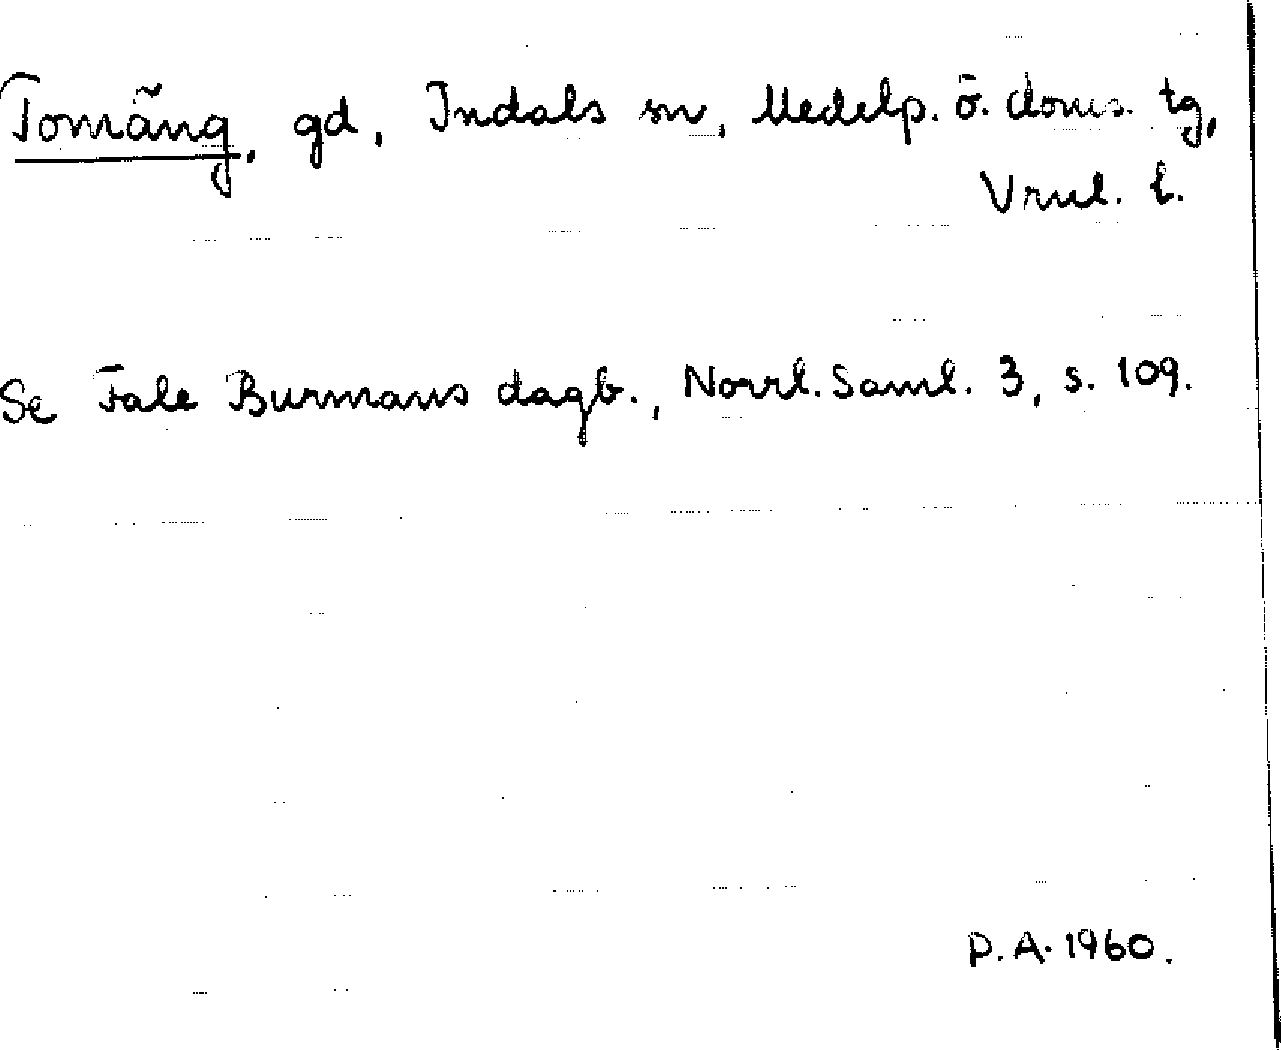 Tomäng, gd, Indals sn, Medelp. ö. doms. tg,
Vrnl. l.
Se Fale Burmans dagb., Norrl. Saml. 3, s. 109.
P.A. 1960.